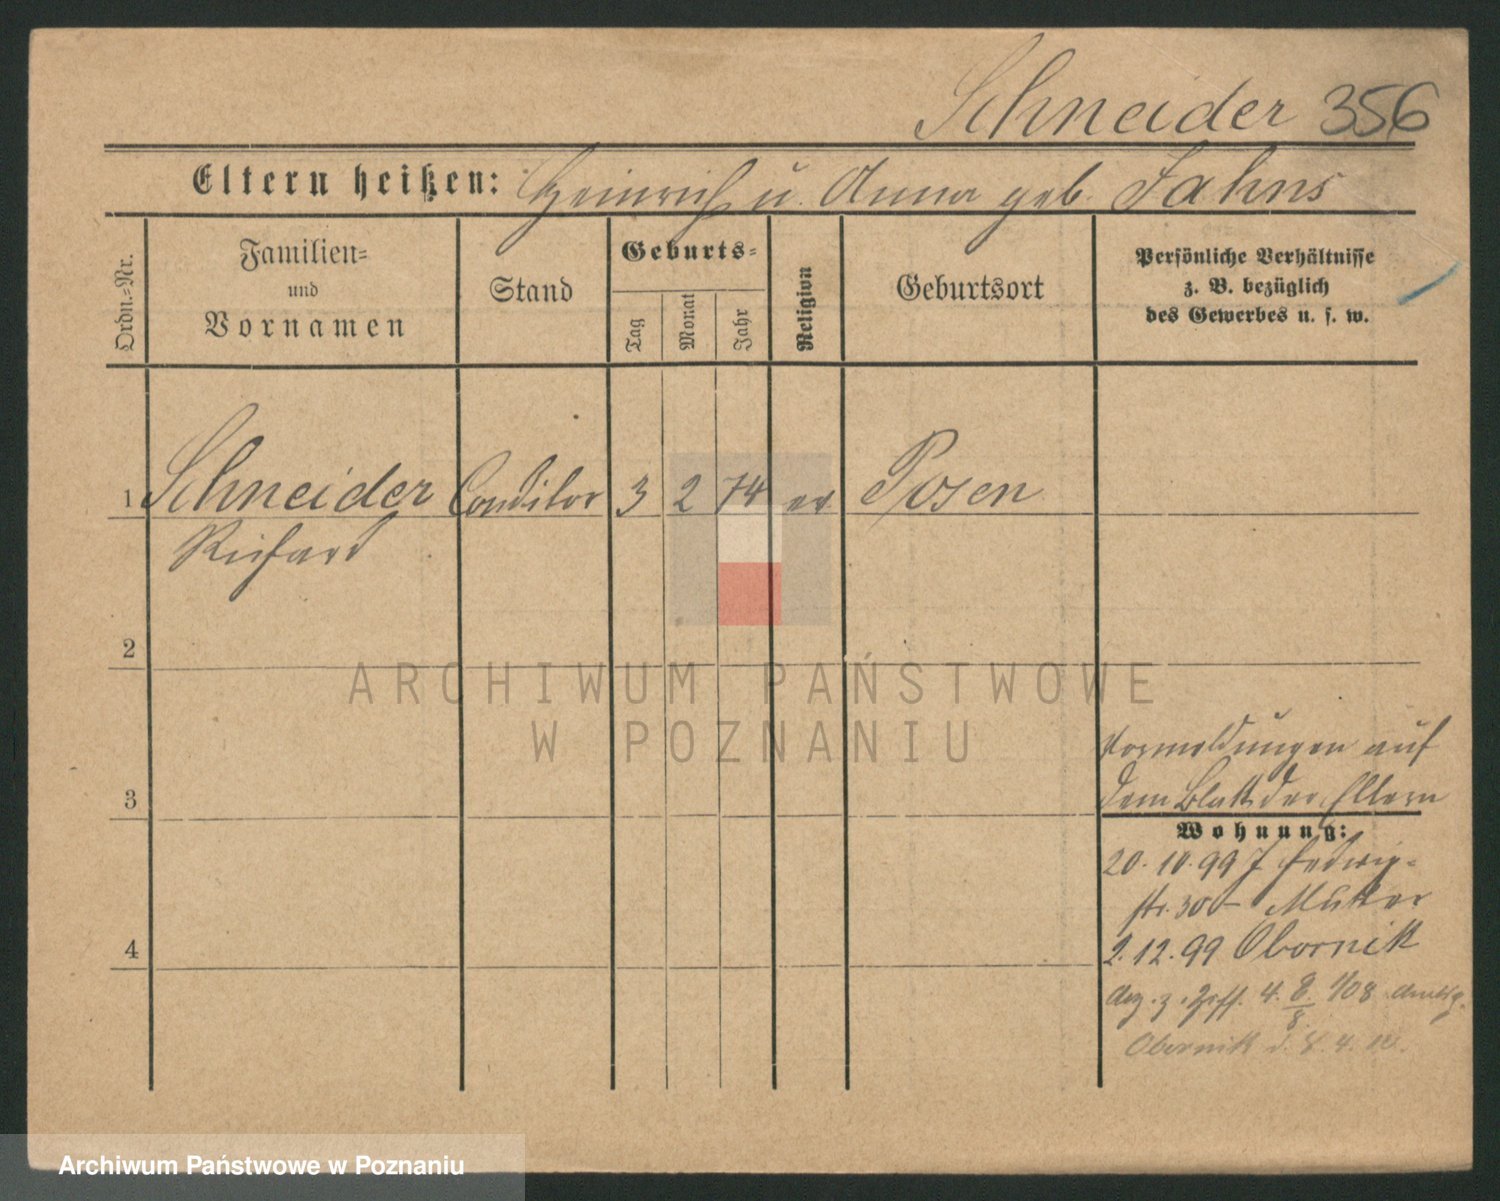 Schneider 356
Eltern heißen: Heinrich u. Anna geb. Jahns
Ordn.-Nr.
Familien-
und
Vornamen
Stand
Geburts-
Tag
Monat
Jahr
Religion
Geburtsort
Persönliche Verhältnisse
z. B. bezüglich
des Gewerbes u. s. w.
1 Schneider Conditor 3 2 74 ev Posen
Richard
2
ARCHIWUM PAŃSTWOWE
W POZNANIU
Vormeldungen auf
3 dem Blatt der Eltern
Wohnung:
20.10.99 Hedwig-
str. 30 Mutter
4 2.12.99 Obornik
4. 8. 08
Obornik
Archiwum Państwowe w Poznaniu